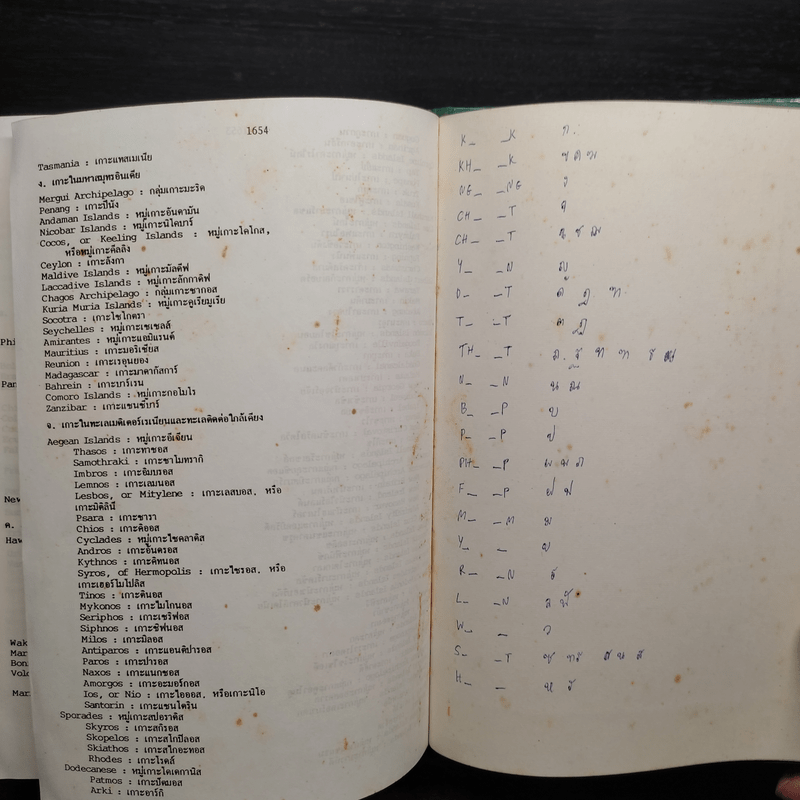 1654
Tasmania : เกาะแทสเมเนีย
ง. เกาะในมหาสมุทรอินเดีย
Mergui Archipelago : กลุ่มเกาะมะริด
Penang : เกาะปีนัง
Andaman Islands : หมู่เกาะอันดามัน
Nicobar Islands : หมู่เกาะนิโคบาร์
Cocos, or Keeling Islands : หมู่เกาะโคโกส,
หรือหมู่เกาะคีลลิง
Ceylon : เกาะลังกา
Maldive Islands : หมู่เกาะมัลดีฟ
Laccadive Islands : หมู่เกาะลักกาดิฟ
Chagos Archipelago : กลุ่มเกาะชากอส
Kuria Muria Islands : หมู่เกาะคูเรียมูเรีย
Socotra : เกาะโซโกตรา
Seychelles : หมู่เกาะเซเชลส์
Amirantes : หมู่เกาะแอมิแรนต์
Mauritius : เกาะมอริเชียส
Reunion : เกาะเรอูนยอง
Madagascar : เกาะมาดากัสการ์
Bahrein : เกาะบาร์เรน
Comoro Islands : หมู่เกาะกอโมโร
Zanzibar : เกาะแซนซิบาร์
จ. เกาะในทะเลเมดิเตอร์เรเนียนและทะเลติดต่อใกล้เคียง
Aegean Islands : หมู่เกาะอีเจียน
Thasos : เกาะทาซอส
Samothraki : เกาะซาโมทรากิ
Imbros : เกาะอิมบรอส
Lemnos : เกาะเลมนอส
Lesbos, or Mitylene : เกาะเลสบอส, หรือ
เกาะมิติลินี
Psara : เกาะซารา
Chios : เกาะคิออส
Cyclades : หมู่เกาะไซคลาดิส
Andros : เกาะอันดรอส
Kythnos : เกาะคิทนอส
Syros, of Hermopolis : เกาะไซรอส, หรือ
เกาะเฮอร์โมโปลิส
Tinos : เกาะตินอส
Mykonos : เกาะไมโกนอส
Seriphos : เกาะเซริฟอส
Siphnos : เกาะซิฟนอส
Milos : เกาะมิลอส
Antiparos : เกาะแอนติปารอส
Paros : เกาะปารอส
Naxos : เกาะแนกซอส
Amorgos : เกาะอะมอร์กอส
Ios, or Nio : เกาะไอออส, หรือเกาะนิโอ
Santorin : เกาะแซนโตริน
Sporades : หมู่เกาะสปอราดิส
Skyros : เกาะสกิรอส
Skopelos : เกาะสโกปีลอส
Skiathos : เกาะสไกอะทอส
Rhodes : เกาะโรดส์
Dodecanese : หมู่เกาะโดเดคานิส
Patmos : เกาะปัตมอส
Arki : เกาะอาร์กิ
Phi
Par
New
ค.
Haw
Wak
Mar
Bon
Volc
Mar
K_ _K ก.
KH_ _K ข ค ฆ
NG_ _NG ง
CH_ _T จ
CH_ _T ฉ ช ฌ
Y_ _N ญ
D_ _T ด ฎ ฑ
T_ _T ต ฏ
TH_ _T ถ ฐ ท ฑ ธ ฒ
N_ _N น ณ
B_ _P บ
P_ _P ป
PH_ _P ผ พ ภ
F_ _P ฝ ฟ
M_ _M ม
Y_ _ ย
R_ _N ร
L_ _N ล ฬ
W_ _ ว
S_ _T ซ ทร ศ ษ ส
H_ _ ห ฮ